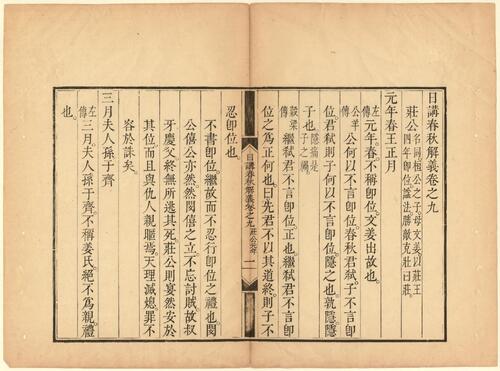 日講春秋解義卷之九
莊公名同桓公之子母文姜以莊王四年即位諡法勝敵克壯曰莊
元年春王正月
左傳元年春不稱即位文姜出故也
公羊傳公何以不言即位春秋君弒子不言即
位君弒則子何以不言即位隱之也孰隱
子也隱痛是子之禍
穀梁傳繼弒君不言即位正也繼弒君不言即
位之爲正何也曰先君不以其道終則子不
日講春秋解義卷之九 莊公元年 一
忍即位也
不書即位繼故而不忍行即位之禮也閔
公僖公亦然然閔僖之立不忘討賊故叔
牙慶父終無所逃其死莊公則宴然安於
其位而且與仇人親暱焉天理滅熄罪不
容於誅矣
三月夫人孫于齊
左傳三月夫人孫于齊不稱姜氏絕不爲親禮
也